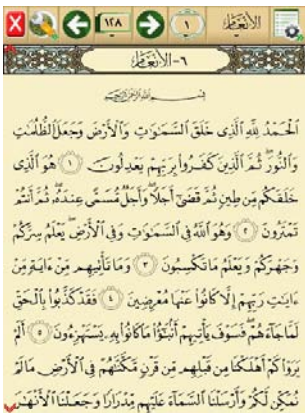 الأنعام ١ ١٢٨
٦- الأنعام
بسم الله الرحمن الرحيم
ٱلْحَمْدُ لِلَّهِ ٱلَّذِى خَلَقَ ٱلسَّمَٰوَٰتِ وَٱلْأَرْضَ وَجَعَلَ ٱلظُّلُمَٰتِ
وَٱلنُّورَ ثُمَّ ٱلَّذِينَ كَفَرُوا۟ بِرَبِّهِمْ يَعْدِلُونَ ١ هُوَ ٱلَّذِى
خَلَقَكُم مِّن طِينٍ ثُمَّ قَضَىٰٓ أَجَلًا وَأَجَلٌ مُّسَمًّى عِندَهُۥ ثُمَّ أَنتُمْ
تَمْتَرُونَ ٢ وَهُوَ ٱللَّهُ فِى ٱلسَّمَٰوَٰتِ وَفِى ٱلْأَرْضِ يَعْلَمُ سِرَّكُمْ
وَجَهْرَكُمْ وَيَعْلَمُ مَا تَكْسِبُونَ ٣ وَمَا تَأْتِيهِم مِّنْ ءَايَةٍ مِّنْ
ءَايَٰتِ رَبِّهِمْ إِلَّا كَانُوا۟ عَنْهَا مُعْرِضِينَ ٤ فَقَدْ كَذَّبُوا۟ بِٱلْحَقِّ
لَمَّا جَآءَهُمْ فَسَوْفَ يَأْتِيهِمْ أَنۢبَٰٓؤُا۟ مَا كَانُوا۟ بِهِۦ يَسْتَهْزِءُونَ ٥ أَلَمْ
يَرَوْا۟ كَمْ أَهْلَكْنَا مِن قَبْلِهِم مِّن قَرْنٍ مَّكَّنَّٰهُمْ فِى ٱلْأَرْضِ مَا لَمْ
نُمَكِّن لَّكُمْ وَأَرْسَلْنَا ٱلسَّمَآءَ عَلَيْهِم مِّدْرَارًا وَجَعَلْنَا ٱلْأَنْهَٰرَ